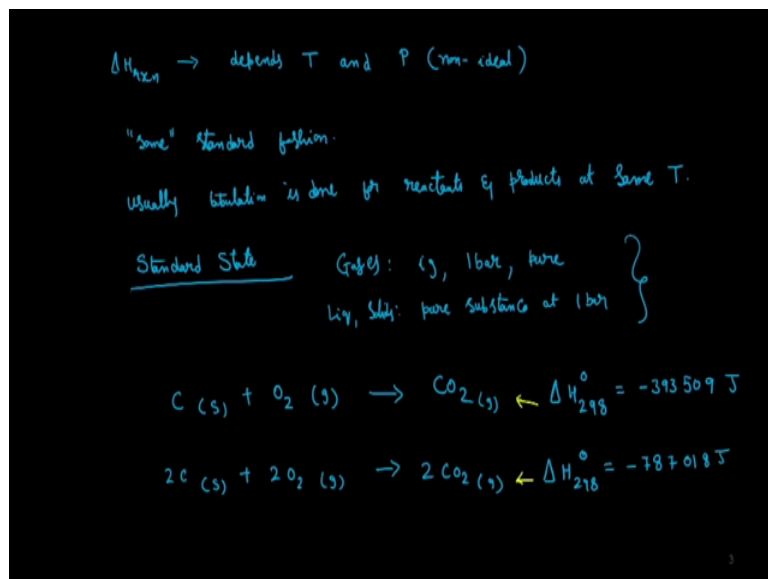 ΔH_rxn → depends T and P (non-ideal)
"some" standard fashion.
Usually tabulation is done for reactants & products at same T.
Standard State Gases: ig, 1 bar, pure
Liq, Solids: pure substance at 1 bar
C (s) + O₂ (g) → CO₂ (g) ← ΔH°₂₉₈ = -393509 J
2C (s) + 2O₂ (g) → 2CO₂ (g) ← ΔH°₂₉₈ = -787018 J
3